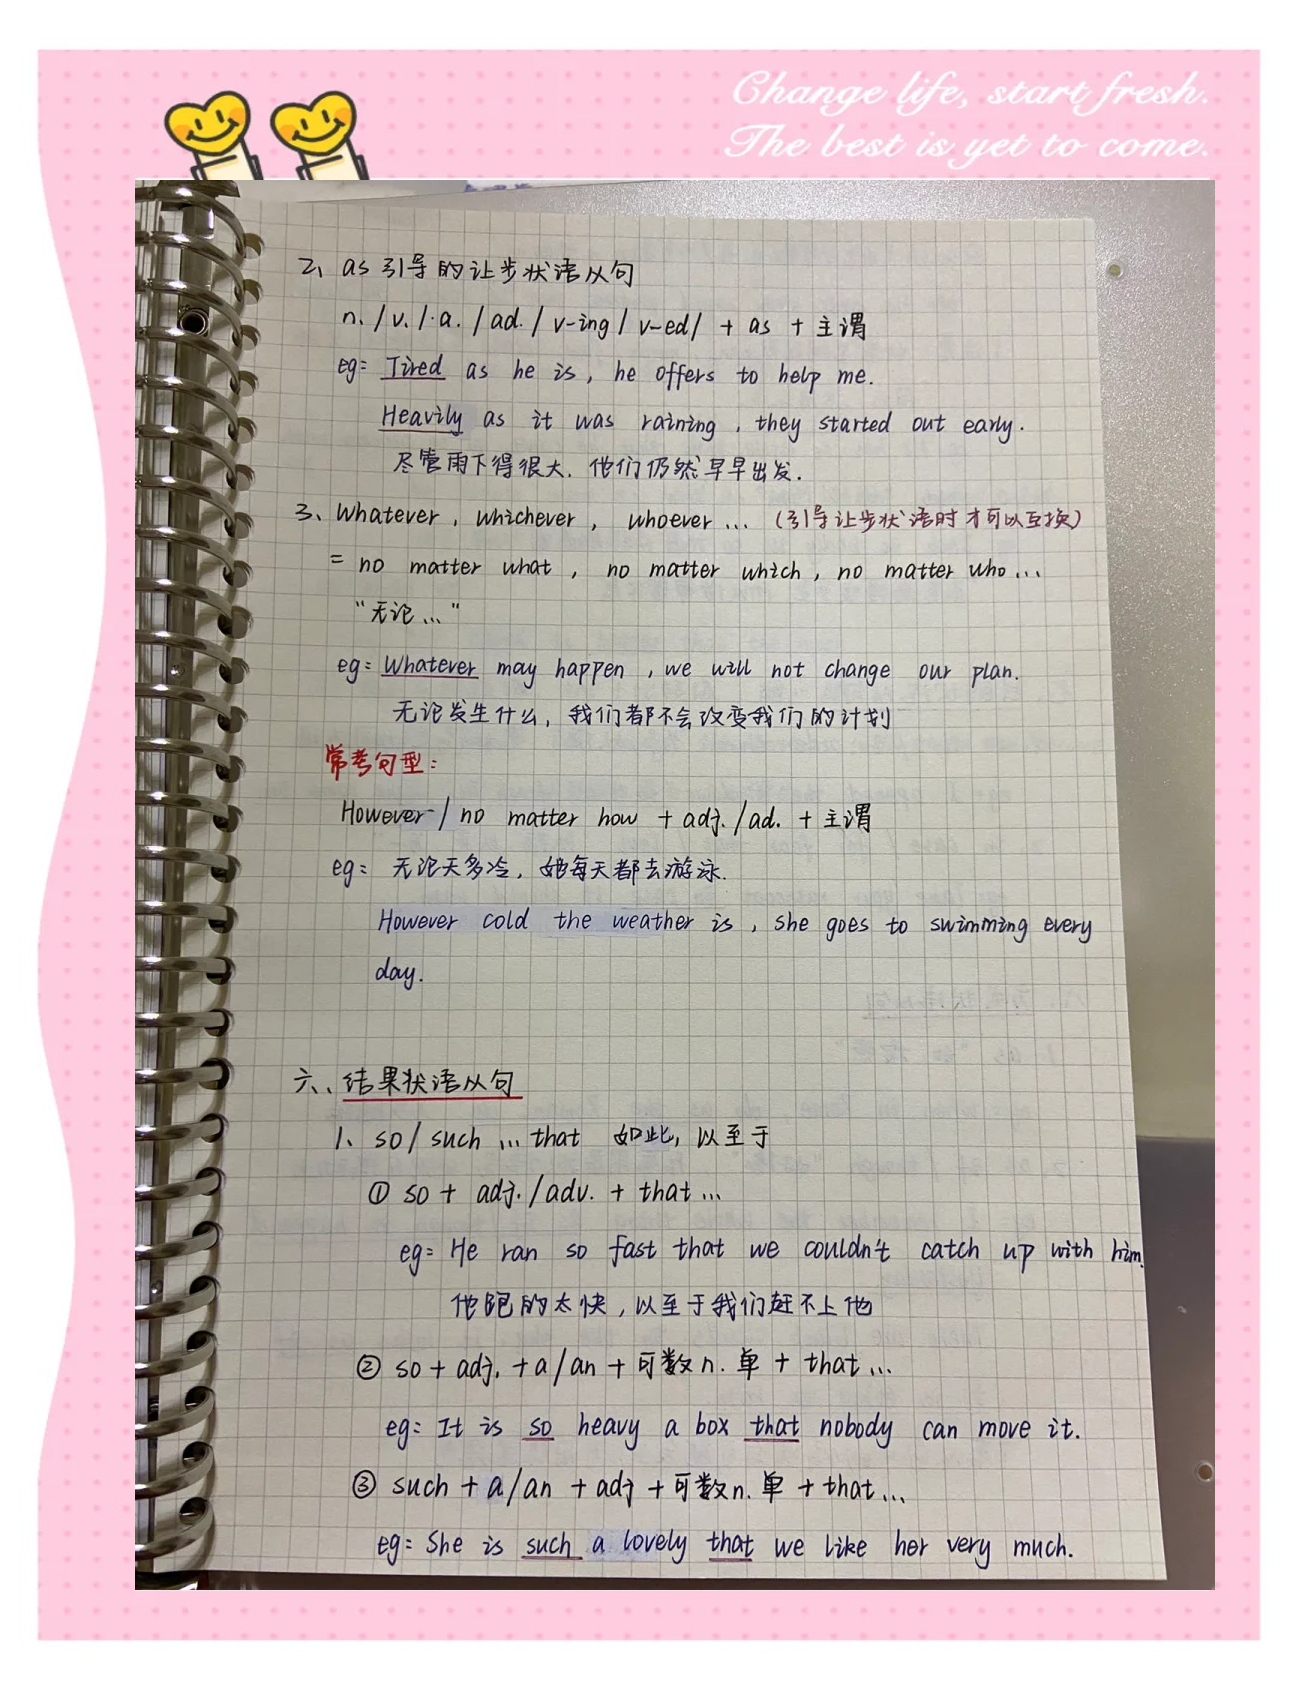 Change life, start fresh.
The best is yet to come.
2、as 引导的让步状语从句
n. / v. / a. / ad. / v-ing / v-ed / + as + 主谓
eg: Tired as he is, he offers to help me.
Heavily as it was raining, they started out early.
尽管雨下得很大, 他们仍然早早出发.
3、Whatever, whichever, whoever ... (引导让步状语时才可以互换)
= no matter what, no matter which, no matter who ...
"无论..."
eg: Whatever may happen, we will not change our plan.
无论发生什么, 我们都不会改变我们的计划
常考句型:
However / no matter how + adj. / ad. + 主谓
eg: 无论天多冷, 她每天都去游泳.
However cold the weather is, she goes to swimming every
day.
六、结果状语从句
1、so / such ... that 如此, 以至于
① so + adj. / adv. + that ...
eg: He ran so fast that we couldn't catch up with him.
他跑的太快, 以至于我们赶不上他
② so + adj. + a / an + 可数n. 单 + that ...
eg: It is so heavy a box that nobody can move it.
③ such + a / an + adj + 可数n. 单 + that ...
eg: She is such a lovely that we like her very much.